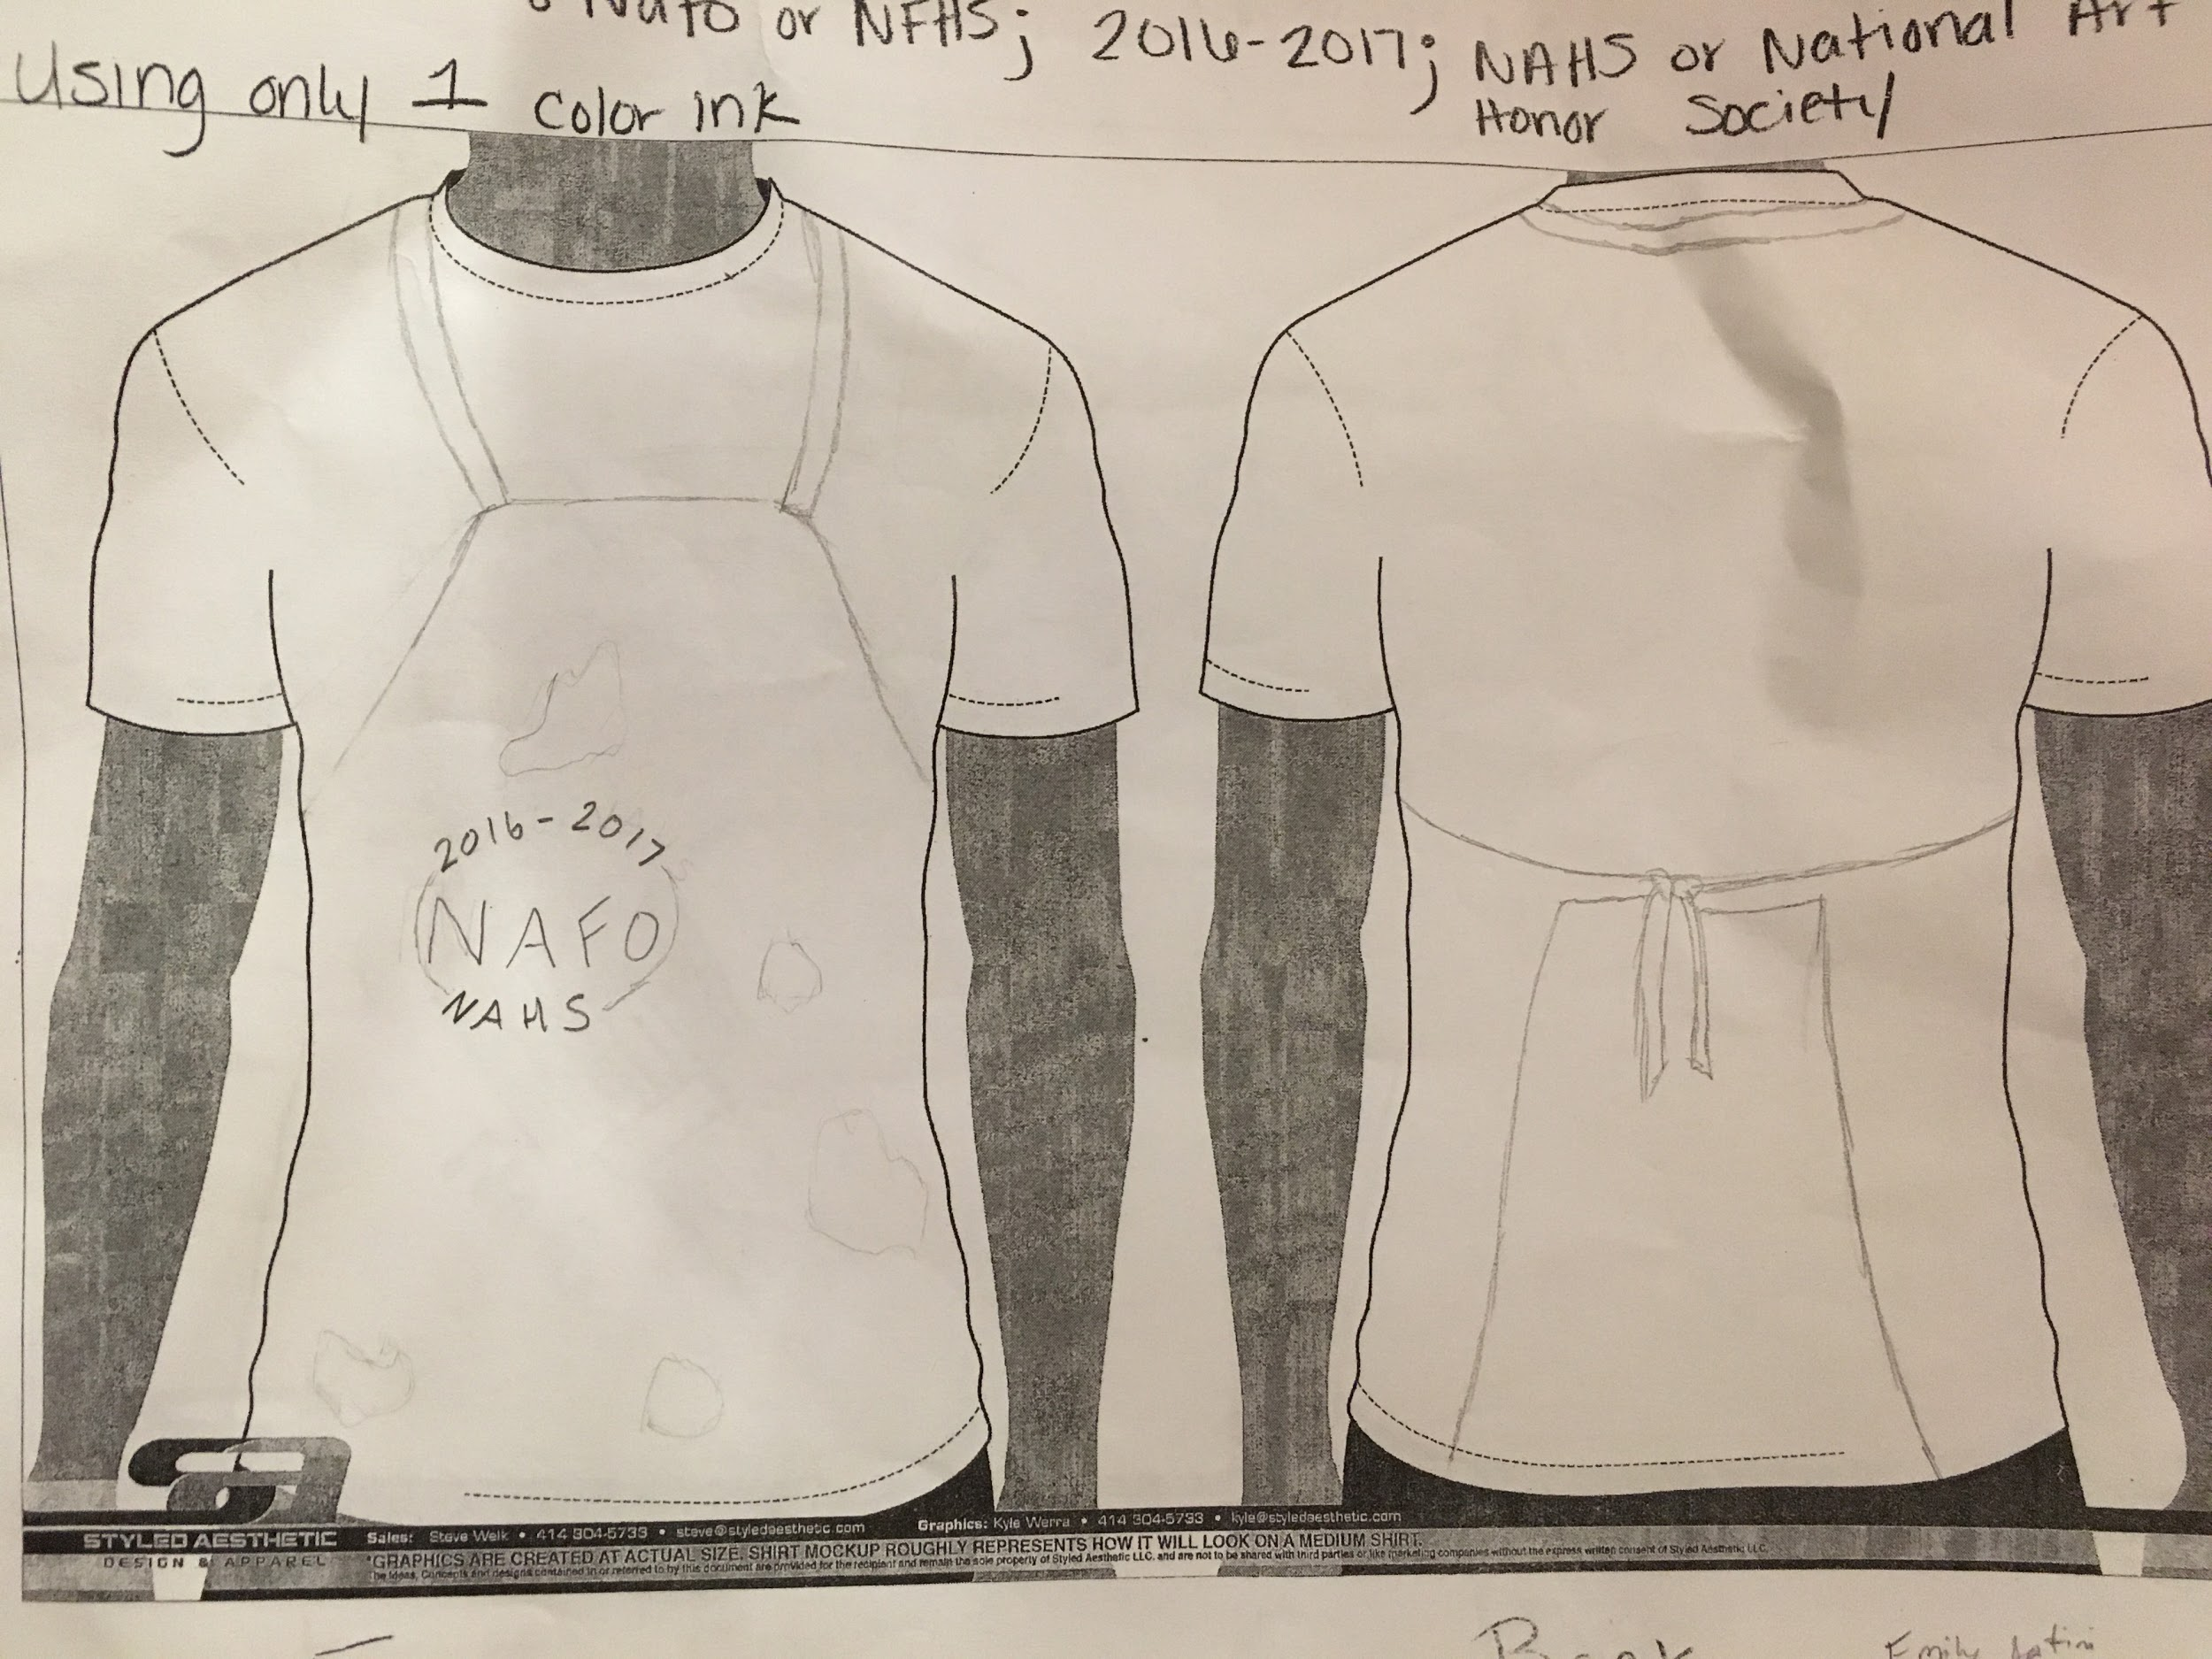 Nafo or NFHS; 2016-2017; NAHS or National Art
Honor Society
Using only 1 color ink
2016-2017
NAFO
NAHS
STYLED AESTHETIC
DESIGN & APPAREL
Sales: Steve Welk • 414 304-5733 • steve@styledaesthetic.com
Graphics: Kyle Werra • 414 304-5733 • kyle@styledaesthetic.com
*GRAPHICS ARE CREATED AT ACTUAL SIZE. SHIRT MOCKUP ROUGHLY REPRESENTS HOW IT WILL LOOK ON A MEDIUM SHIRT.
The Ideas, Concepts and designs contained in or referred to by this document are provided for the recipient and remain the sole property of Styled Aesthetic LLC. and are not to be shared with third parties or like marketing companies without the express written consent of Styled Aesthetic LLC.
Emily